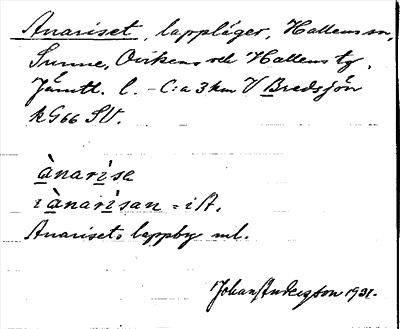 Anariset, lappläger, Hallens sn,
Sunne, Ovikens och Hallens tg,
Jämtl. l. – C:a 3 km V Bredsjön
kG66 SV.
ànarìse
i ànarìsan = i A.
Anarisets lappby ml.
Johan Anderson 1931.